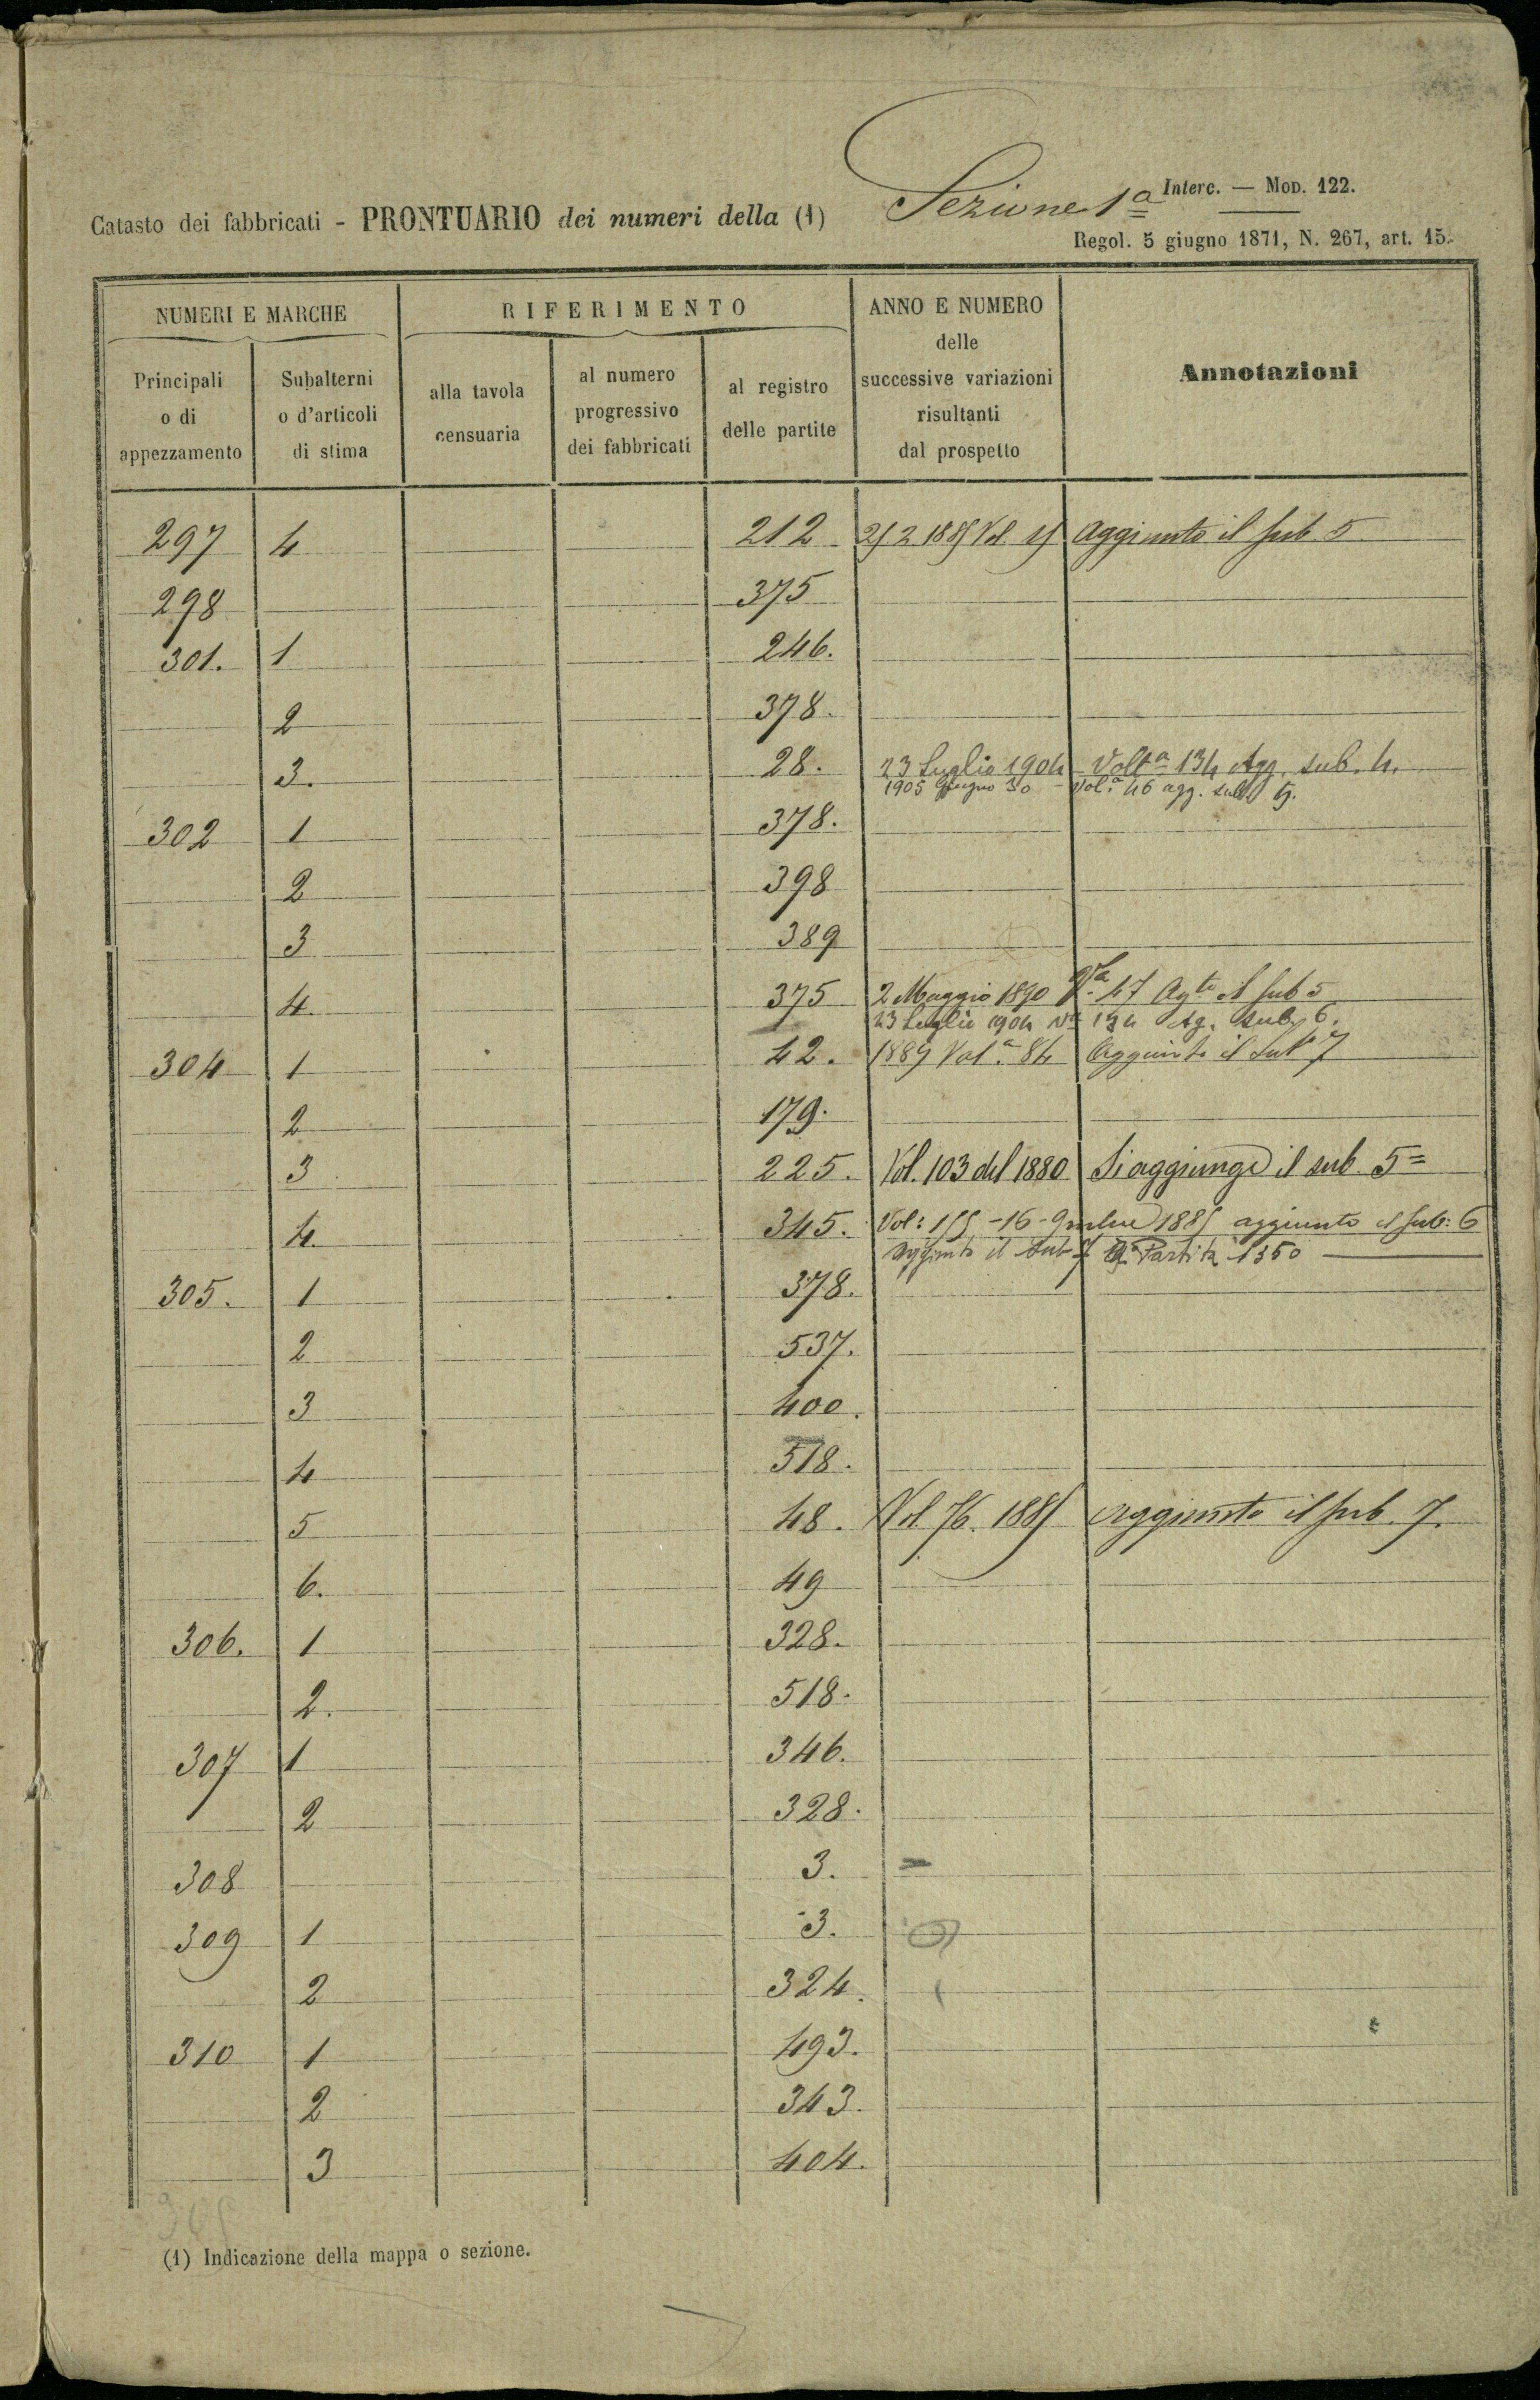 Sezione 1ª
Interc. — Mod. 122.
Catasto dei fabbricati - PRONTUARIO dei numeri della (1)
Regol. 5 giugno 1871, N. 267, art. 15.
NUMERI E MARCHE
RIFERIMENTO
ANNO E NUMERO
delle
successive variazioni
risultanti
dal prospetto
Annotazioni
Principali
o di
appezzamento
Subalterni
o d'articoli
di stima
alla tavola
censuaria
al numero
progressivo
dei fabbricati
al registro
delle partite
297 4 212 Vol aggiunto il sub 5
298 375
301. 1 246.
2 378.
3. 28. 23 Luglio 1904 Volª 134 Agg. sub. 4.
1905 Giugno 30 - Vol.ª 46 agg. sub 5.
302 1 378.
2 398
3 389
4. 375 2 Maggio 1890 Vª 47 Agto il sub 5
23 Luglio 1904 Vª 134 Ag. sub. 6.
304 1 42. 1889 Vol.ª 84 Aggiunto il sub 7
2 179.
3 225. Vol. 103 del 1880 Si aggiunge il sub. 5=
4. 345. Vol: 155 - 16 - 9mbre 1885 aggiunto il sub: 6
Aggiunto il sub 7 Partita 1350
305. 1 378.
2 537.
3 400.
4 518.
5 48. Vol 76. 1885 aggiunto il sub. 7.
6. 49
306. 1 328.
2. 518.
307 1 346.
2 328.
308 3. =
309 1 3.
2 324.
310 1 493.
2 343.
3 404.
(1) Indicazione della mappa o sezione.